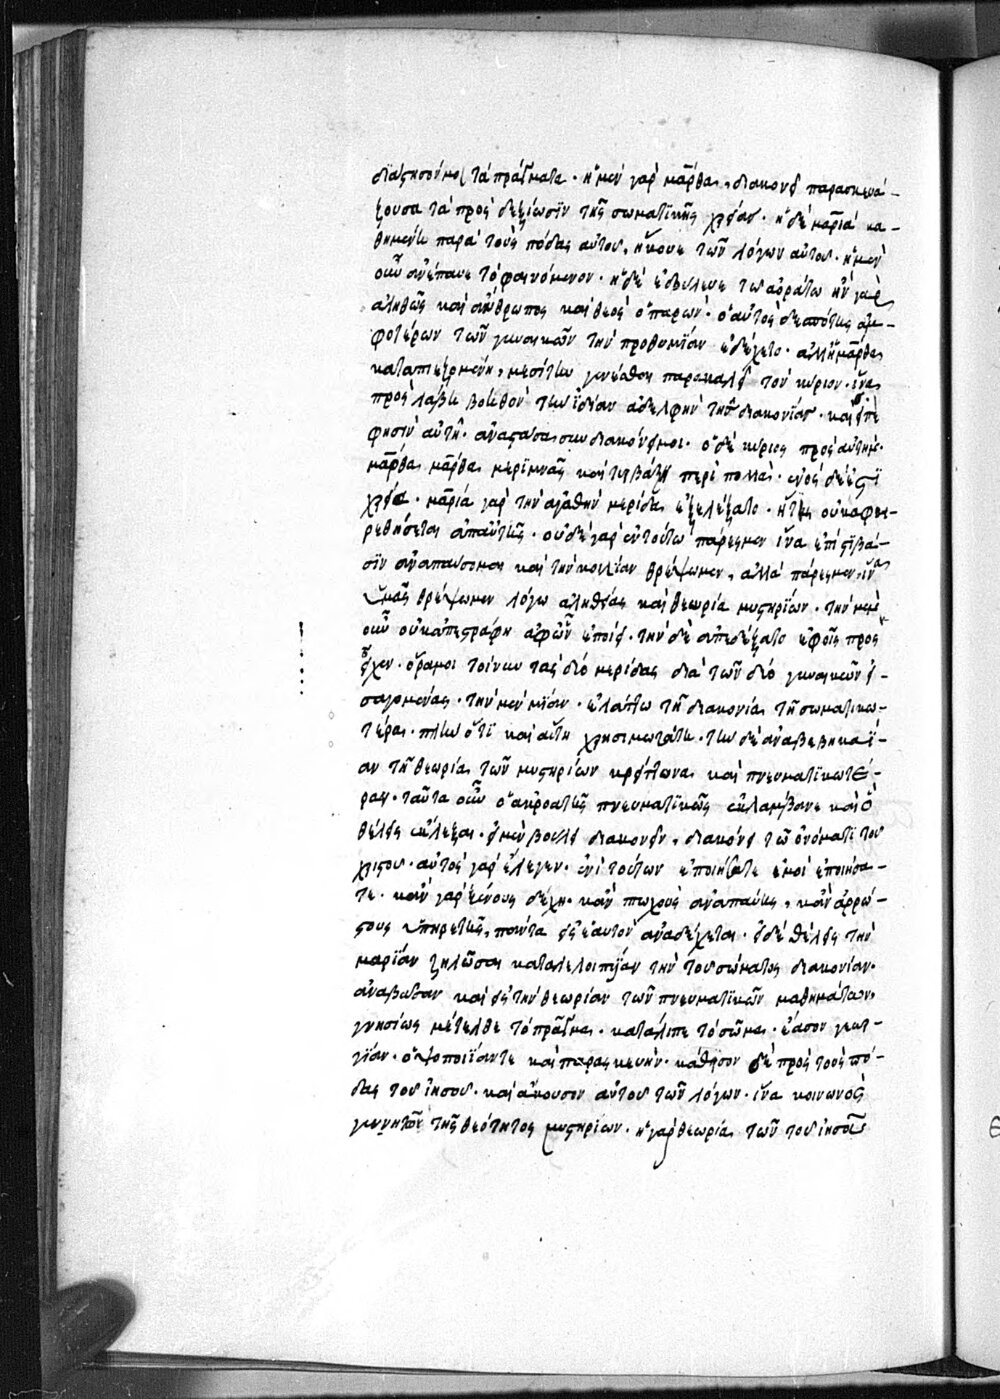 διαστήσουσί μοι τὰ πράγματα · ἡ μὲν γὰρ μάρθα, διακονεῖ παρασκευά-
ζουσα τὰ πρὸς δεξίωσιν τῆς σωματικῆς χρείας · ἡ δὲ μαρία κα-
θημένη παρὰ τοὺς πόδας αὐτοῦ, ἤκουε τῶν λόγων αὐτοῦ · ἡ μὲν
οὖν ἀνέπαυε τὸ φαινόμενον · ἡ δὲ ἐδούλευε τῶ ἀοράτω ἦν γὰρ
ἀληθῶς καὶ ἄνθρωπος καὶ θεὸς ὁ παρών · ὁ αὐτὸς δεσπότης ἀμ-
φοτέρων τῶν γυναικῶν τὴν προθυμίαν ἐδέχετο · ἀλλ' ἡ μάρθα
καταπιεζομένη, μεσίτην γενέσθαι παρακαλεῖ τὸν κύριον · ἵνα
προσλάβη βοηθὸν τὴν ἰδίαν ἀδελφὴν τῆς διακονίας · καὶ εἰπέ
φησιν αὐτῆ · ἀναστᾶσα συνδιακόνει μοι · ὁ δὲ κύριος πρὸς αὐτήν ·
μάρθα μάρθα μεριμνᾶς καὶ τυρβάζη περὶ πολλά · ἑνὸς δέ ἐστι
χρεία · μαρία γὰρ τὴν ἀγαθὴν μερίδα ἐξελέξατο · ἥτις οὐκ ἀφαι-
ρεθήσεται ἀπ' αὐτῆς · οὐδὲ γὰρ ἐν τούτω πάρεσμεν ἵνα ἐπὶ στιβά-
σιν ἀναπαυσόμεθα καὶ τὴν κοιλίαν θρέψωμεν, ἀλλὰ πάρεσμεν, ἵνα
ὑμᾶς θρέψωμεν λόγω ἀληθείας καὶ θεωρία μυστηρίων · τὴν μὲν
οὖν οὐκ ἀπεστράφη ἀφ' ὧν ἐποίει · τὴν δὲ ἀπεδέξατο ἐφ' οἷς προσ
εῖχεν · ὅρα μοι τοίνυν τὰς δύο μερίδας διὰ τῶν δύο γυναικῶν εἰ-
σαγομένας · τὴν μὲν μίαν · ἐλάττω τῆ διακονία τῆ σωματικω-
τέρα · πλὴν ὅτι καὶ αὕτη χρησιμωτάτη · τὴν δὲ ἀναβεβηκυῖ-
αν τῆ θεωρία τῶν μυστηρίων κρείττονα καὶ πνευματικωτέ-
ραν · ταῦτα οὖν ὁ ἀκροατὴς πνευματικῶς ἐκλάμβανε καὶ ὃ
θέλεις ἔκλεξαι · εἰ μὲν βούλει διακονεῖν, διακόνει τῶ ὀνόματι τοῦ
χριστοῦ · αὐτὸς γὰρ ἔλεγεν · ἑνὶ τούτων ἐποιήσατε ἐμοὶ ἐποιήσα-
τε · κἂν γὰρ ξένους δέχη · κἂν πτωχοὺς ἀναπαύης, κἂν ἀρρώ-
στους ὑπηρετῆς, πάντα εἰς ἑαυτὸν ἀναδέχεται · εἰ δὲ θέλεις τὴν
μαρίαν ζηλῶσαι καταλελοιπυῖαν τὴν τοῦ σώματος διακονίαν ·
ἀναβᾶσαν καὶ εἰς τὴν θεωρίαν τῶν πνευματικῶν μαθημάτων,
γνησίως μέτελθε τὸ πρᾶγμα · κατάλιπε τὸ σῶμα · ἔασον γεωρ-
γίαν · ὀψοποιΐαν τε καὶ παρασκευήν · κάθησον δὲ πρὸς τοὺς πό-
δας τοῦ ἰησοῦ · καὶ ἄκουσον αὐτοῦ τῶν λόγων · ἵνα κοινωνὸς
γένη τῶν τῆς θεότητος μυστηρίων · ἡ γὰρ θεωρία τῶν τοῦ ἰησοῦ